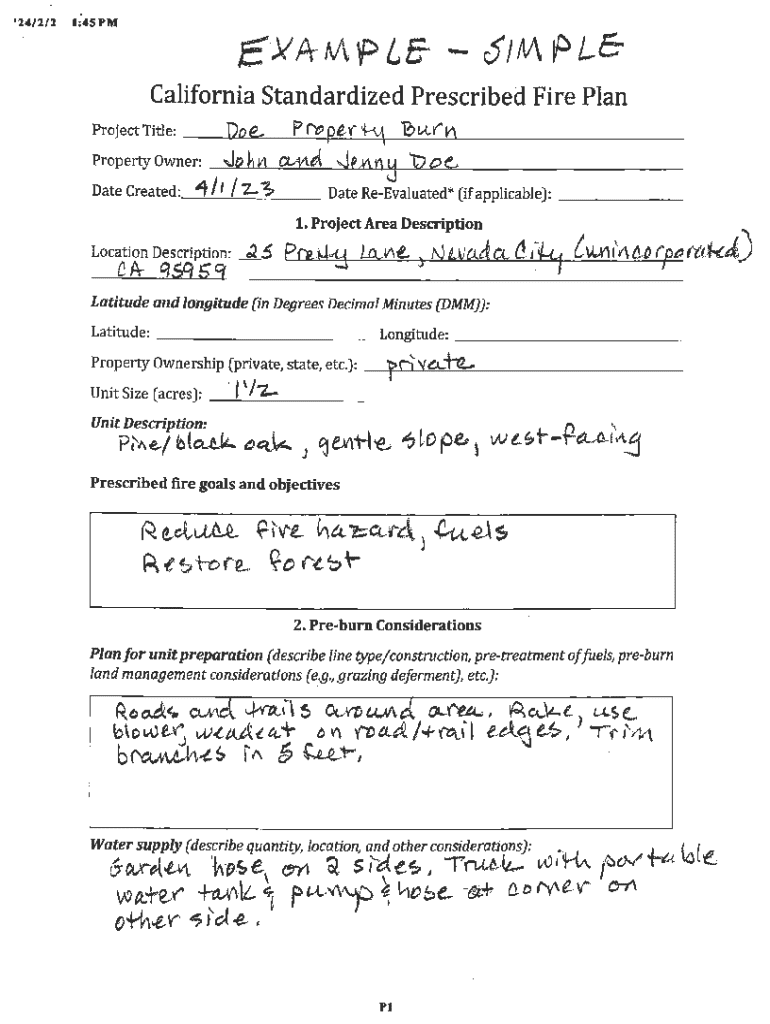 '24/2/2 1:45 PM
EXAMPLE - SIMPLE
California Standardized Prescribed Fire Plan
Project Title: Doe Property Burn
Property Owner: John and Jenny Doe
Date Created: 4/1/23 Date Re-Evaluated* (if applicable):
1. Project Area Description
Location Description: 25 Pretty Lane, Nevada City (unincorporated)
CA 95959
Latitude and longitude (in Degrees Decimal Minutes (DMM)):
Latitude: Longitude:
Property Ownership (private, state, etc.): private
Unit Size (acres): 1 1/2
Unit Description:
Pine/black oak, gentle slope, west-facing
Prescribed fire goals and objectives
Reduce fire hazard, fuels
Restore forest
2. Pre-burn Considerations
Plan for unit preparation (describe line type/construction, pre-treatment of fuels, pre-burn
land management considerations (e.g., grazing deferment), etc.):
Roads and trails around area. Rake, use
blower, weadeat on road/trail edges. Trim
branches in 5 feet.
Water supply (describe quantity, location, and other considerations):
Garden hose on 2 sides. Truck with portable
water tank & pump & hose at corner on
other side.
P1